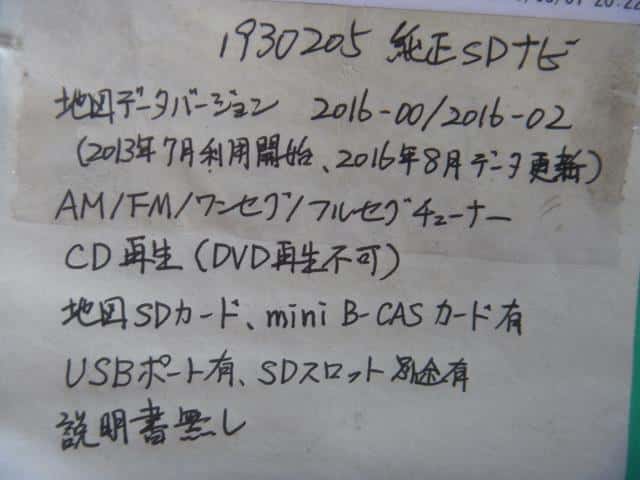 1930205 純正SDナビ
地図データバージョン 2016-00/2016-02
(2013年7月利用開始、2016年8月データ更新)
AM/FM/ワンセグ/フルセグチューナー
CD再生(DVD再生不可)
地図SDカード、mini B-CASカード有
USBポート有、SDスロット別途有
説明書無し